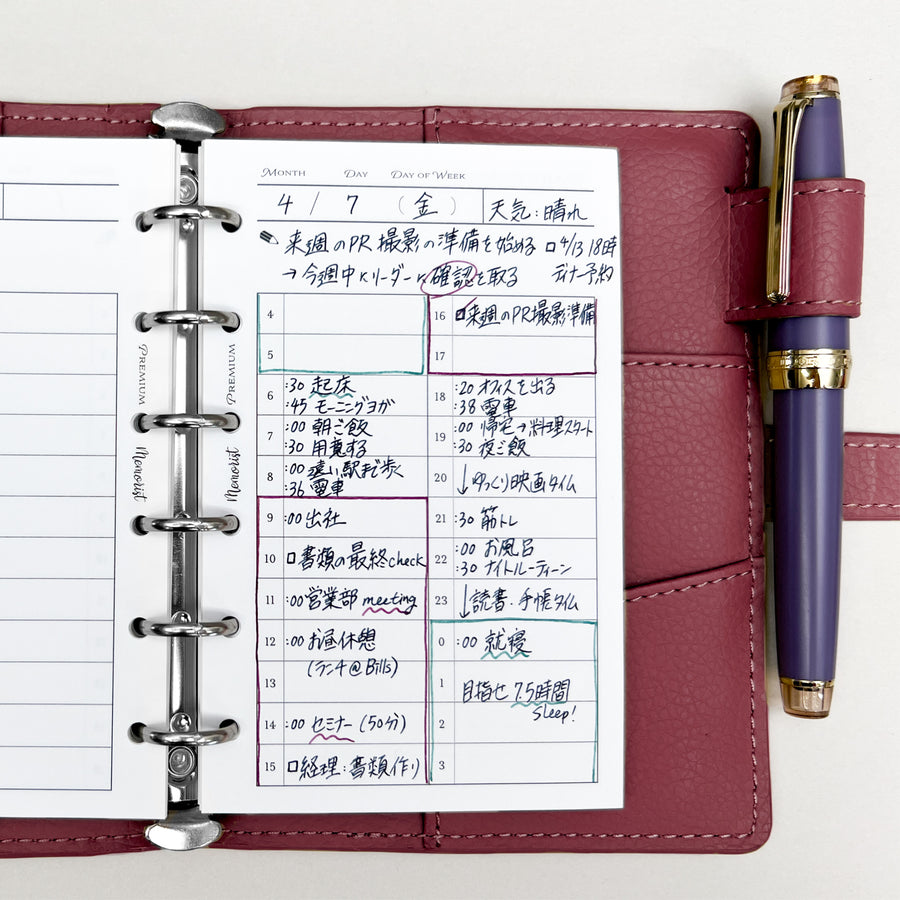 MONTH DAY DAY OF WEEK
4 / 7 (金) 天気:晴れ
来週のPR撮影の準備を始める
→今週中にリーダーに確認を取る
□4/13 18時
ディナー予約
4
5
6 :30 起床
:45 モーニングヨガ
7 :00 朝ご飯
:30 用意する
8 :00 遠い駅まで歩く
:36 電車
9 :00 出社
10 □書類の最終check
11 :00 営業部 meeting
12 :00 お昼休憩
(ランチ@Bills)
13
14 :00 セミナー(50分)
15 □経理:書類作り
16 ☑来週のPR撮影準備
17
18 :20 オフィスを出る
:38 電車
19 :00 帰宅→料理スタート
:30 夜ご飯
20 ↓ゆっくり映画タイム
21 :30 筋トレ
22 :00 お風呂
:30 ナイトルーティーン
23 ↓読書・手帳タイム
0 :00 就寝
1 目指せ 7.5時間
Sleep!
2
3
PREMIUM Memorist
PREMIUM Memorist